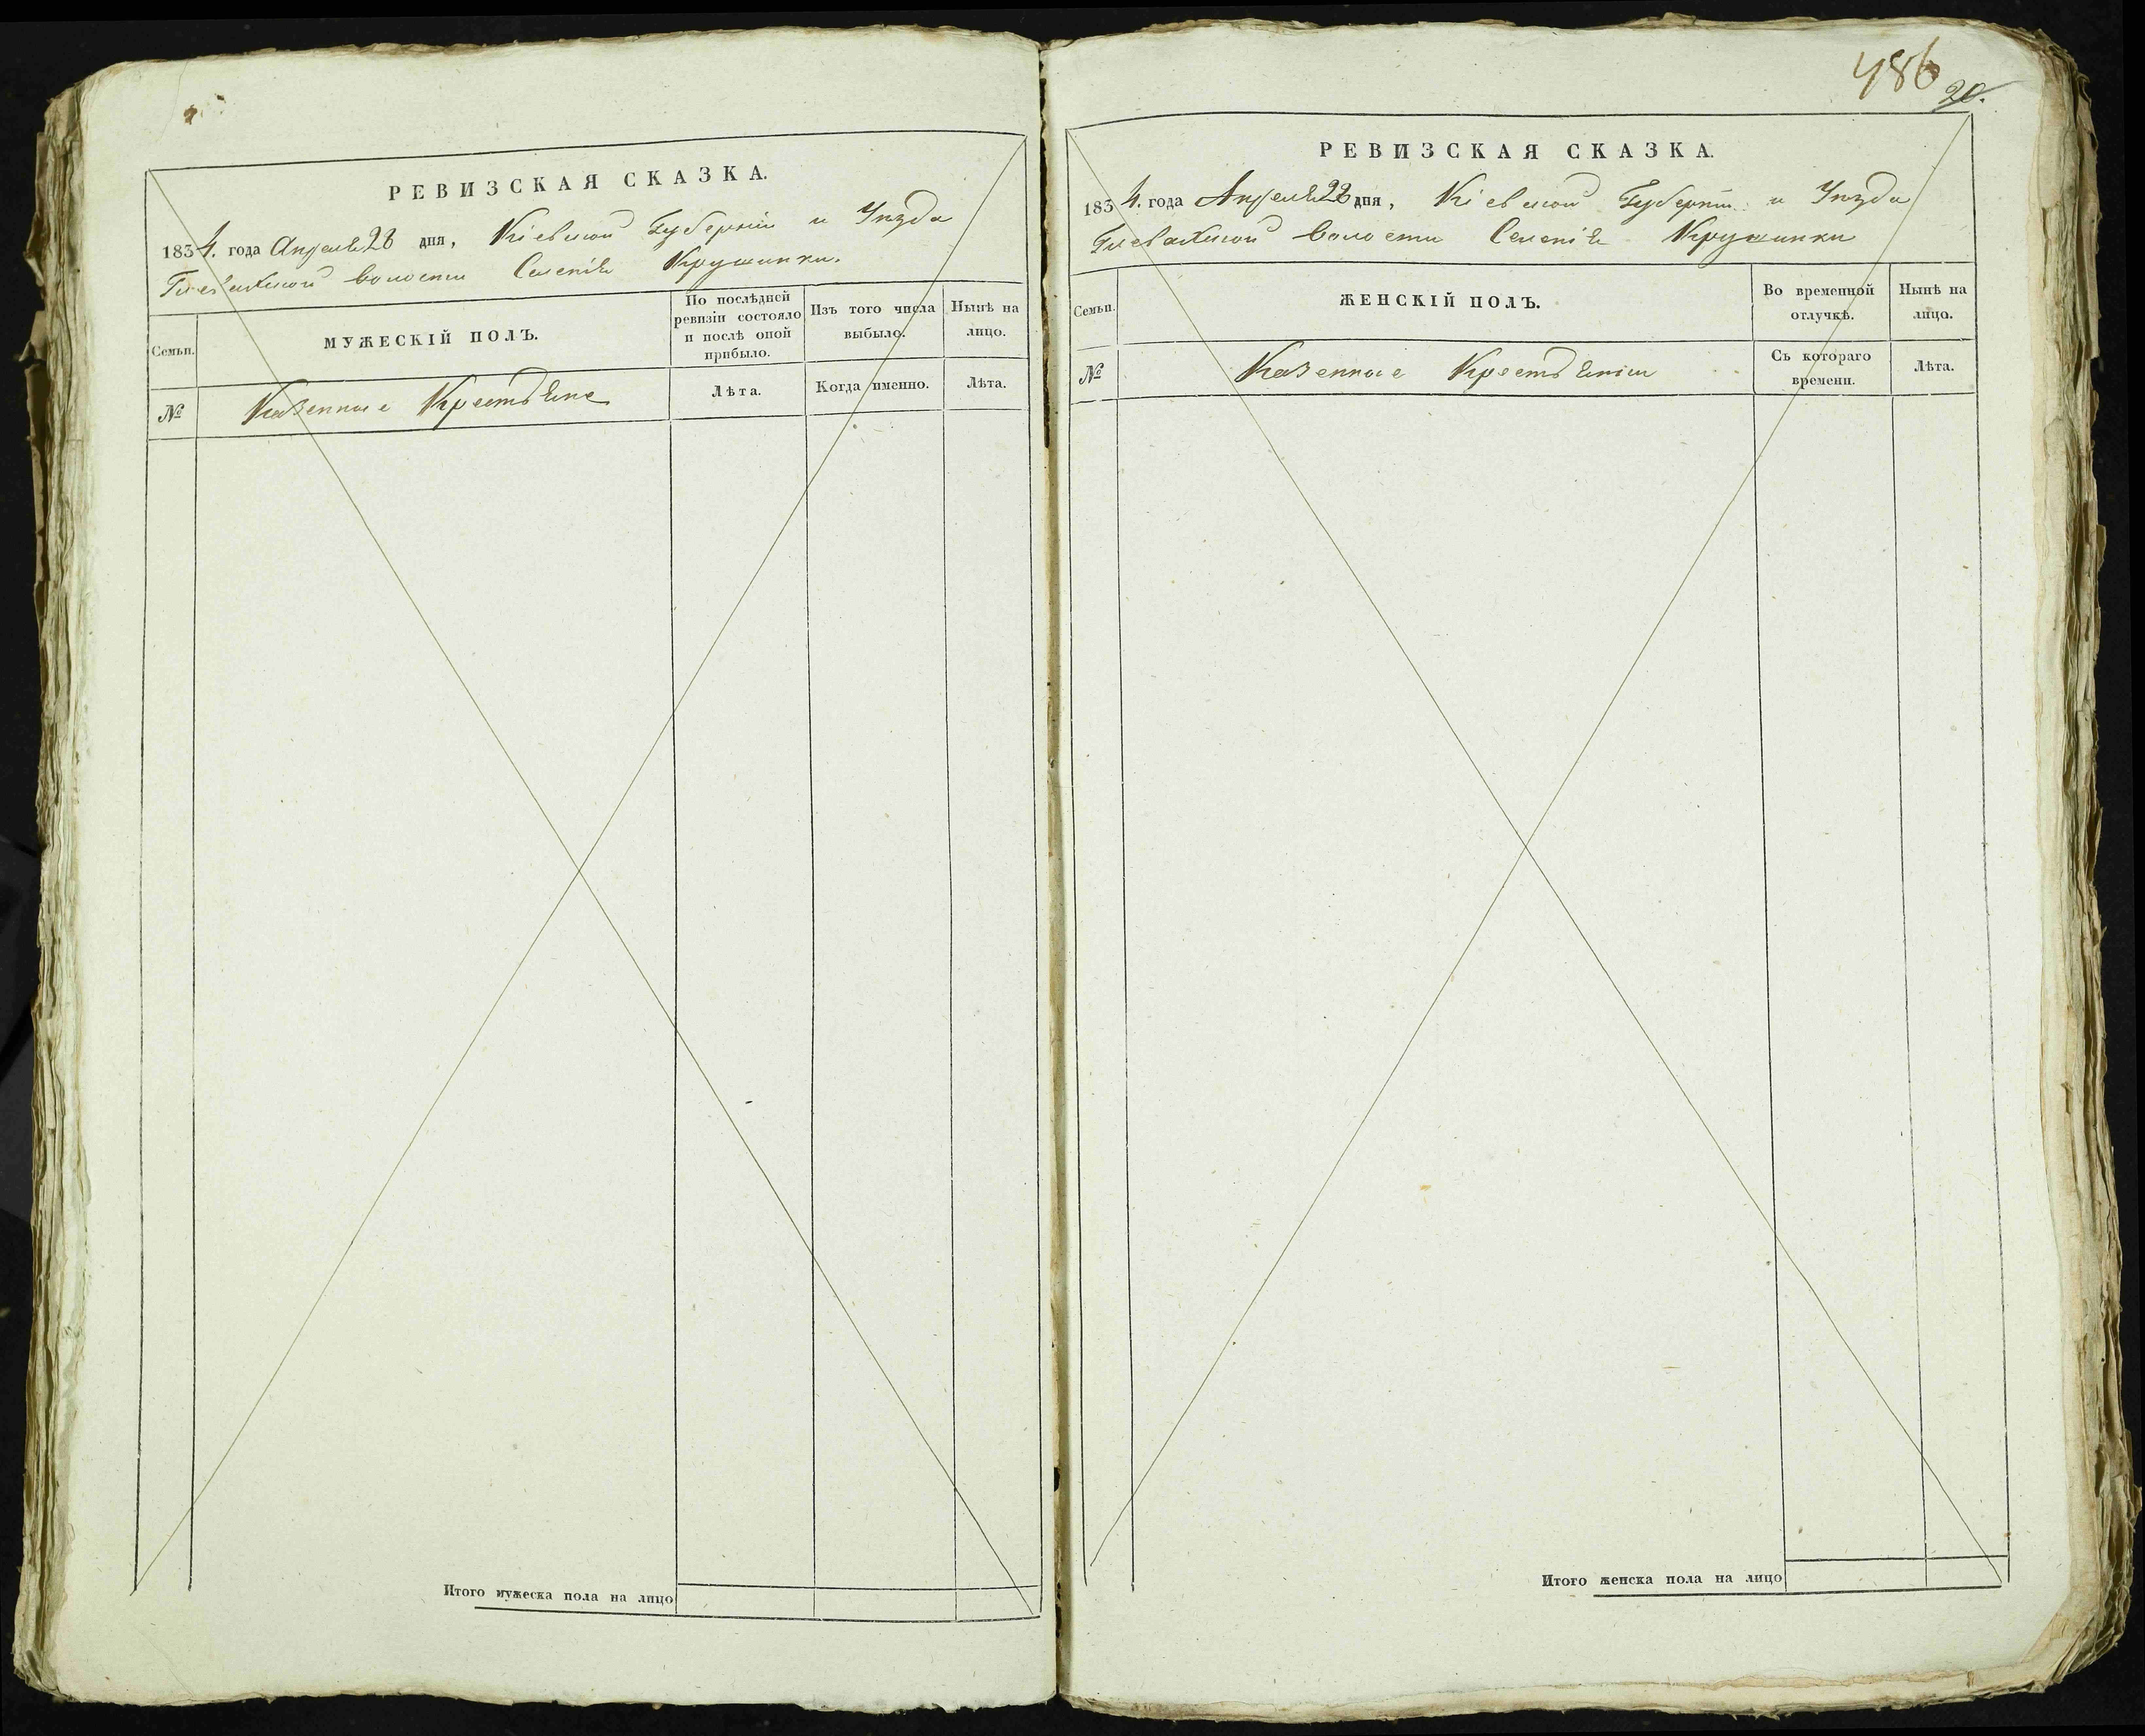 РЕВИЗСКАЯ СКАЗКА.
1834. года Апреля 28 дня, Кіевской Губерніи и Уѣзда
Глевахской волости Селенія Крушинки.
Семьи. МУЖЕСКІЙ ПОЛЪ. По послѣдней ревизіи состояло и послѣ оной прибыло. Изъ того числа выбыло. Нынѣ на лицо.
№ Казенные Крестьяне Лѣта. Когда именно. Лѣта.
Итого мужеска пола на лицо
486
20.
РЕВИЗСКАЯ СКАЗКА.
1834. года Апреля 28 дня, Кіевской Губерніи и Уѣзда
Глевахской волости Селенія Крушинки
Семьи. ЖЕНСКІЙ ПОЛЪ. Во временной отлучкѣ. Нынѣ на лицо.
№ Казенные Крестьянки Съ котораго времени. Лѣта.
Итого женска пола на лицо